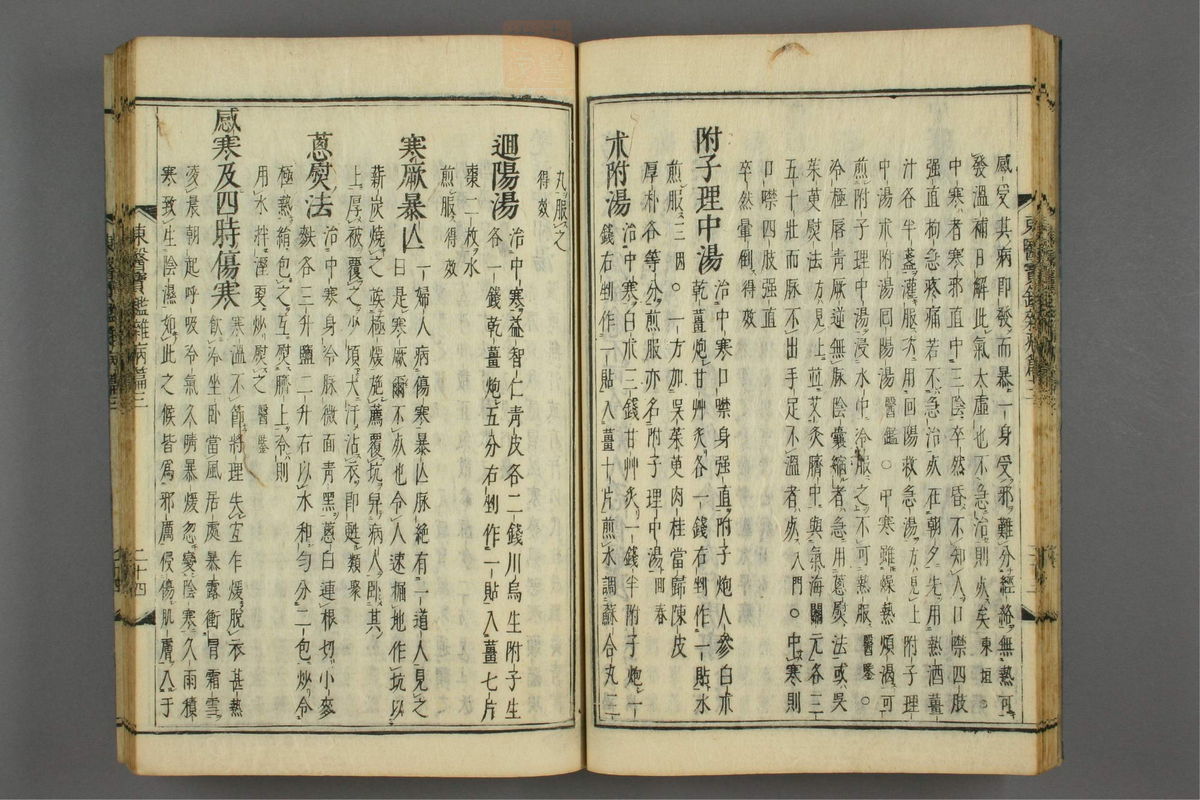 感受其病即發而暴一身受邪難分經絡無熱可
發溫補自解此氣太虛也不急治則死矣東垣○
中寒者寒邪直中三陰卒然昏不知人口噤四肢
强直拘急疼痛若不急治死在朝夕先用熱酒薑
汁各半盞灌服次用回陽救急湯方見上附子理
中湯朮附湯回陽湯醫鑑○中寒雖繰熱煩渴可
煎附子理中湯浸水中冷服之不可熱服醫鑒○
冷極唇青厥逆無脉陰囊縮者急用蔥熨法或吳
茱萸熨法方見上並艾灸臍中與氣海關元各三
五十壯而脉不出手足不溫者死入門○中寒則
口噤四肢强直
卒然暈倒得效
附子理中湯治中寒口噤身强直附子炮人參白朮
乾薑炮甘艸炙各一錢右剉作一貼水
煎服三因○一方加吳茱萸肉桂當歸陳皮
厚朴各等分煎服亦名附子理中湯回春
朮附湯治中寒白朮三錢甘艸炙一錢半附子炮一
錢右剉作一貼入薑十片煎水調蘇合丸三
丸服之
得效
迴陽湯治中寒益智仁青皮各二錢川烏生附子生
各一錢乾薑炮五分右剉作一貼入薑七片
棗二枚水
煎服得效
寒厥暴亾一婦人病傷寒暴亾脉絶有一道人見之
曰是寒厥爾不死也令人速掘地作坑以
薪炭燒之候極煖施薦覆坑舁病人臥其
上厚被覆之少頃大汗沾衣即甦類聚
蔥熨法治中寒身冷脉微面青黑蔥白連根切小麥
麩各三升鹽二升右以水和匀分二包炒令
極熱絹包之互熨臍上冷則
用水拌溼更炒熨之醫鑒
感寒及四時傷寒寒溫不節將理失宜作煖脫衣甚熱
飮冷坐臥當風居處暴露衝冒霜雪
凌晨朝起呼吸冷氣久晴暴煖忽變陰寒久雨積
寒致生陰濕如此之候皆爲邪厲侵傷肌膚入于
東醫寶鑑雜病篇三
二十四